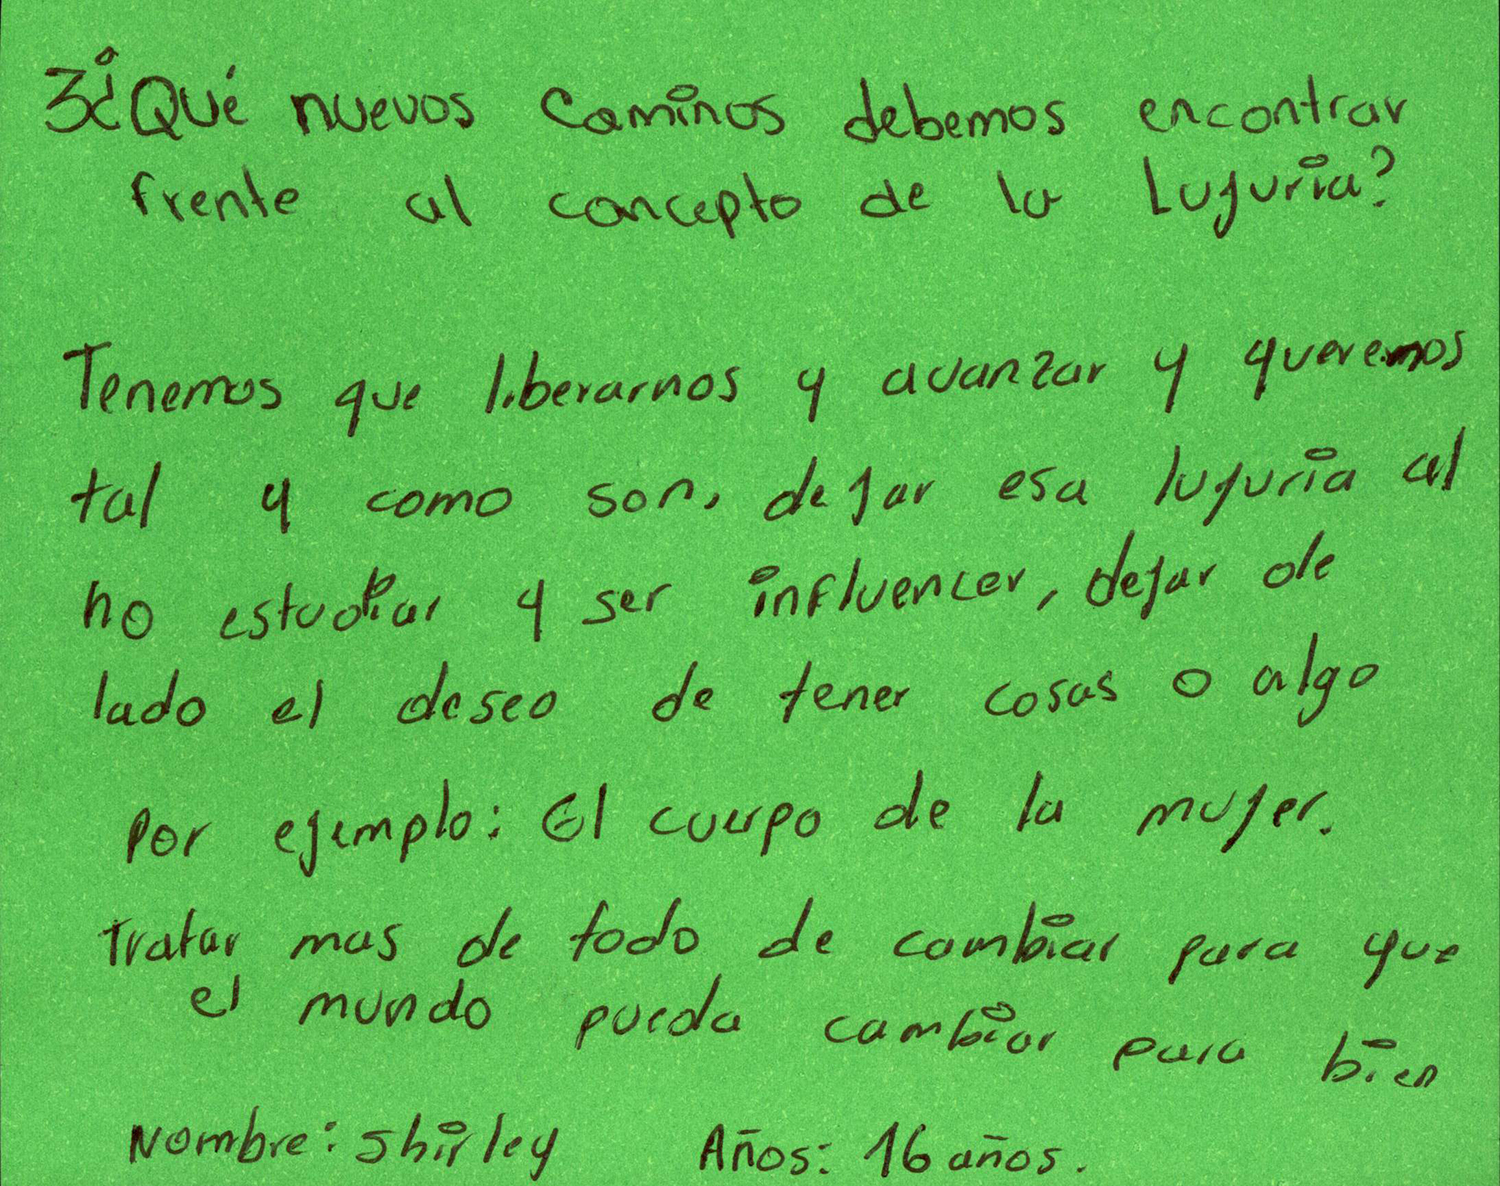 3¿Qué nuevos caminos debemos encontrar
frente al concepto de la Lujuria?
Tenemos que liberarnos y avanzar y queremos
tal y como son, dejar esa lujuria al
no estudiar y ser influencer, dejar de
lado el deseo de tener cosas o algo
por ejemplo: El cuerpo de la mujer.
Tratar mas de todo de cambiar para que
el mundo pueda cambiar para bien
Nombre: Shirley Años: 16 años.